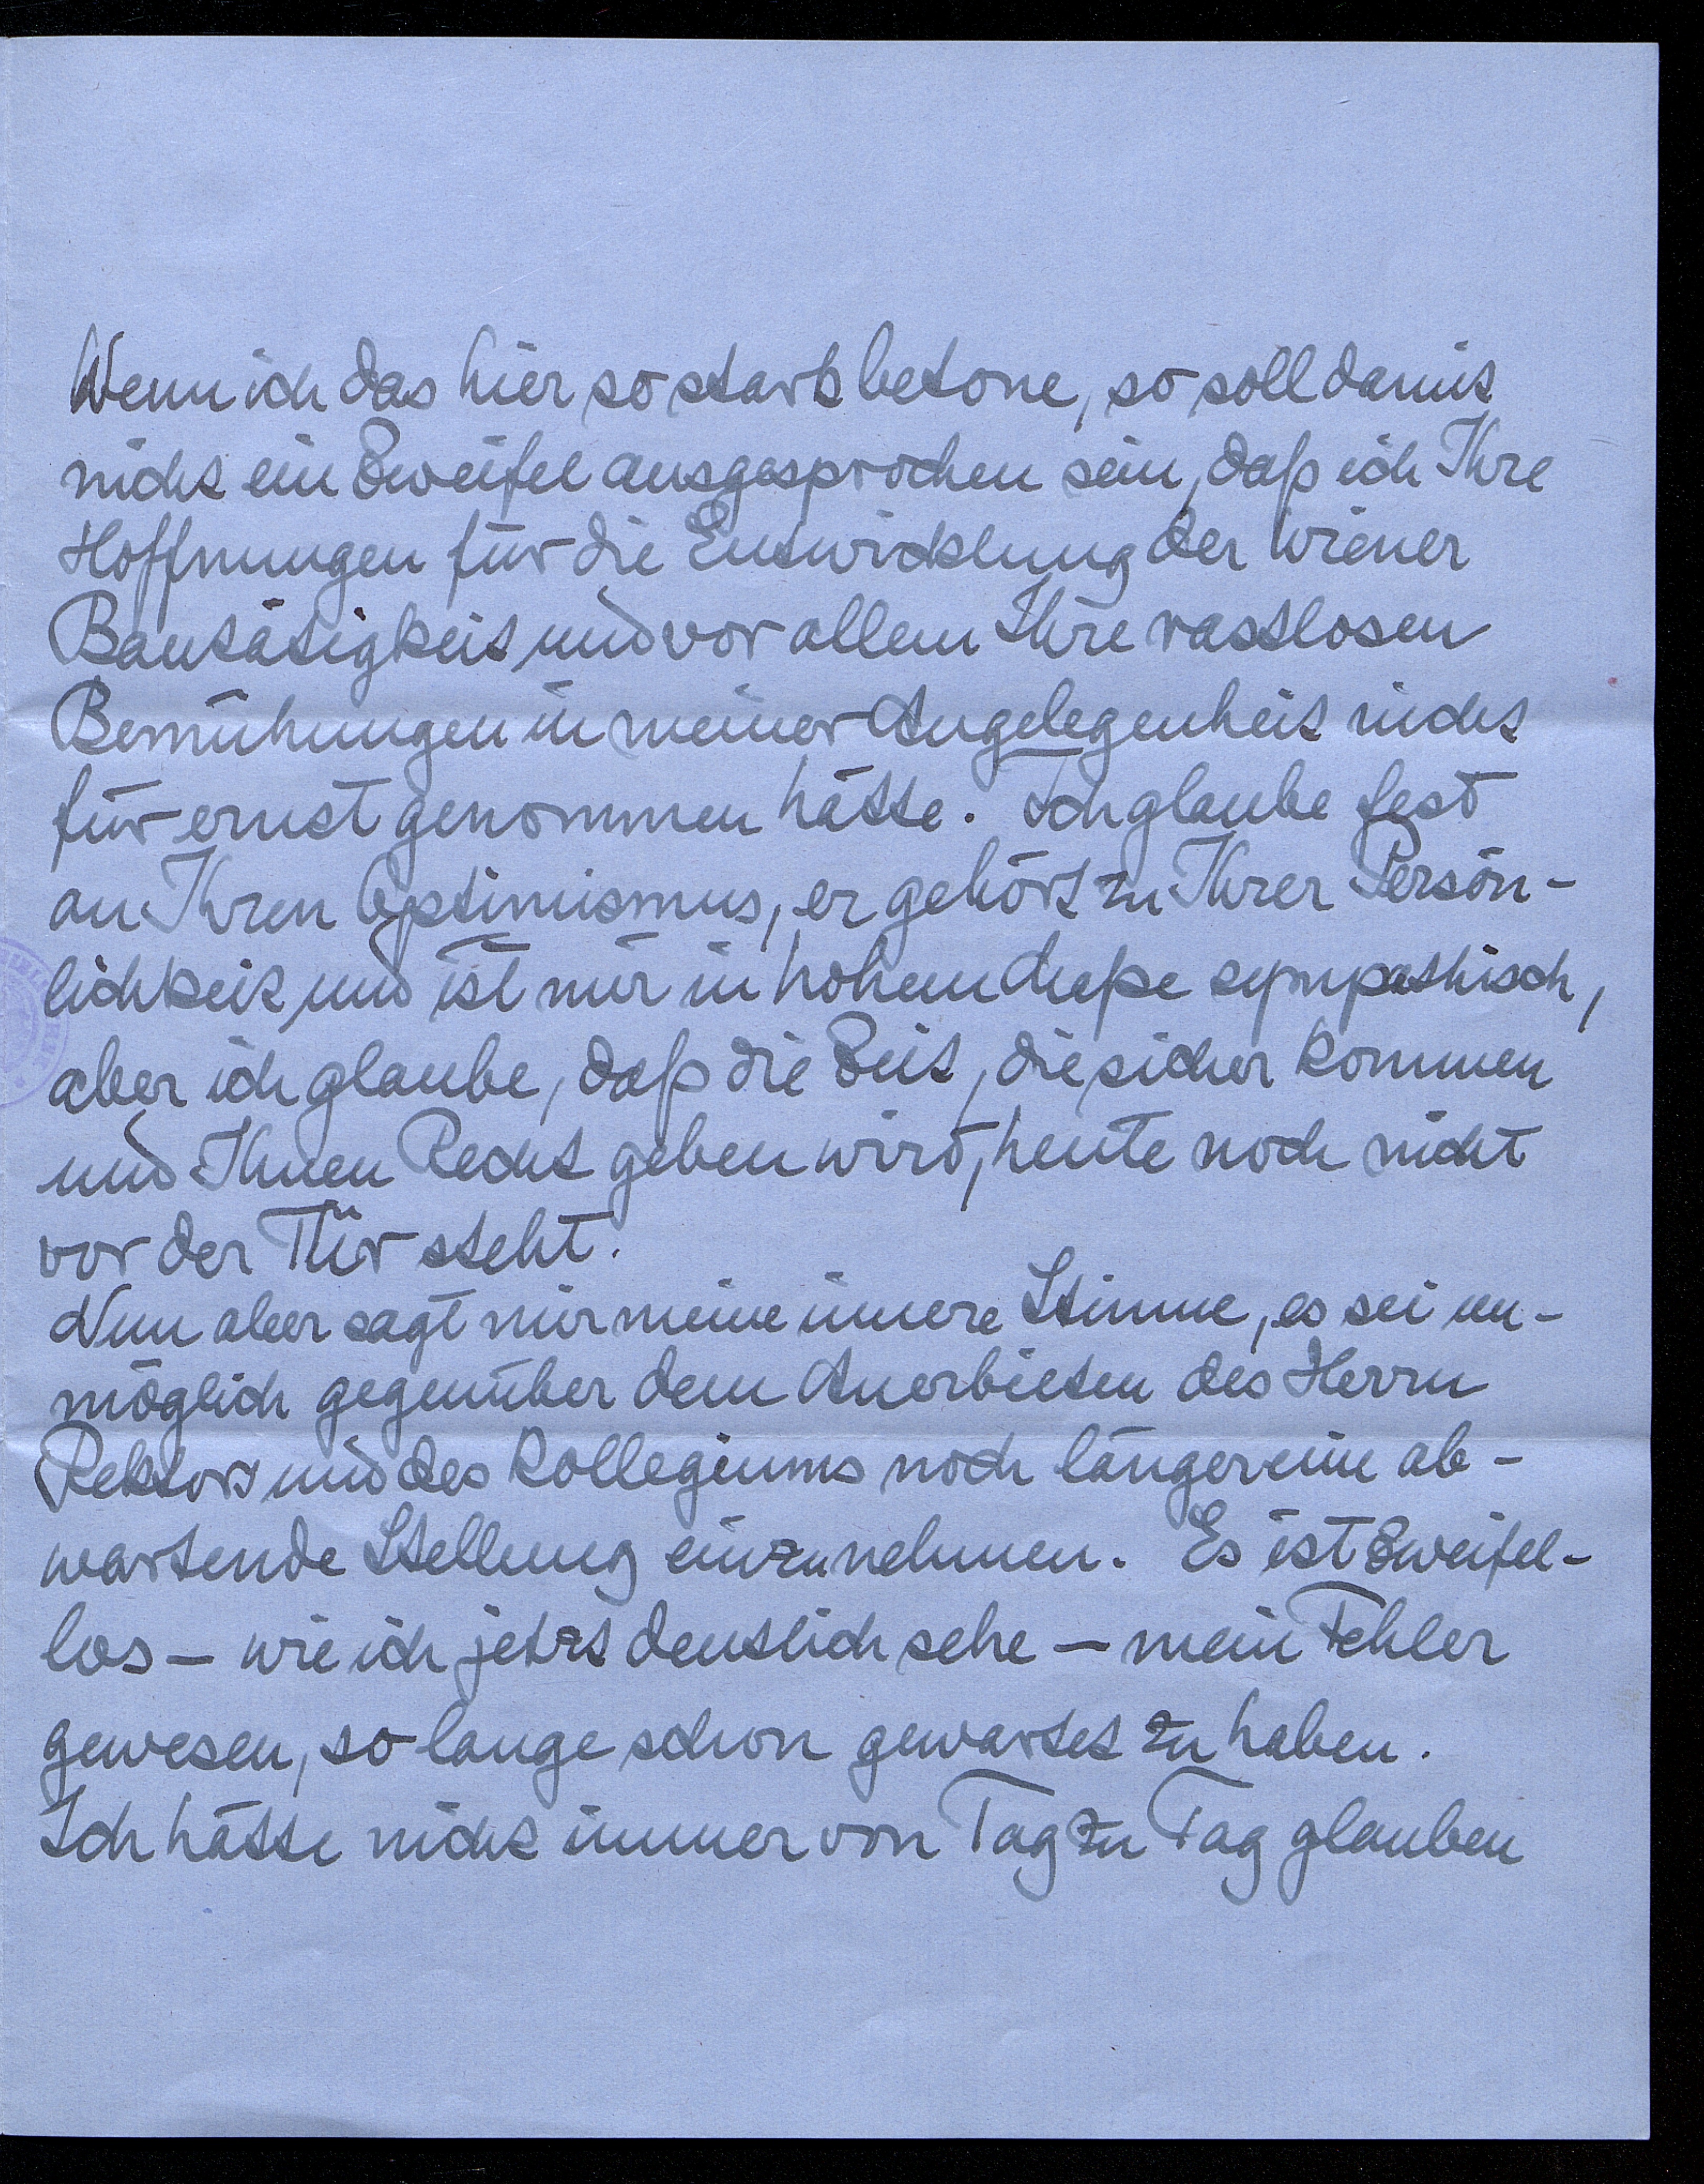 Wenn ich das hier so stark betone, so soll damit
nicht ein Zweifel ausgesprochen sein, daß ich Ihre
Hoffnungen für die Entwicklung der Wiener
Bautätigkeit und vor allem Ihre rastlosen
Bemühungen in meiner Angelegenheit nicht
für ernst genommen hätte. Ich glaube fest
an Ihren Optimismus, er gehört zu Ihrer Persön-
lichkeit und ist mir in hohem Maße sympathisch,
aber ich glaube, daß die Zeit, die sicher kommen
und Ihnen Recht geben wird, heute noch nicht
vor der Tür steht.
Nun aber sagt mir meine innere Stimme, es sei un-
möglich gegenüber dem Anerbieten des Herrn
Rektors und des Kollegiums noch länger eine ab-
wartende Stellung einzunehmen. Es ist Zweifel-
los – wie ich jetzt deutlich sehe – mein Fehler
gewesen, so lange schon gewartet zu haben.
Ich hätte nicht immer von Tag zu Tag glauben